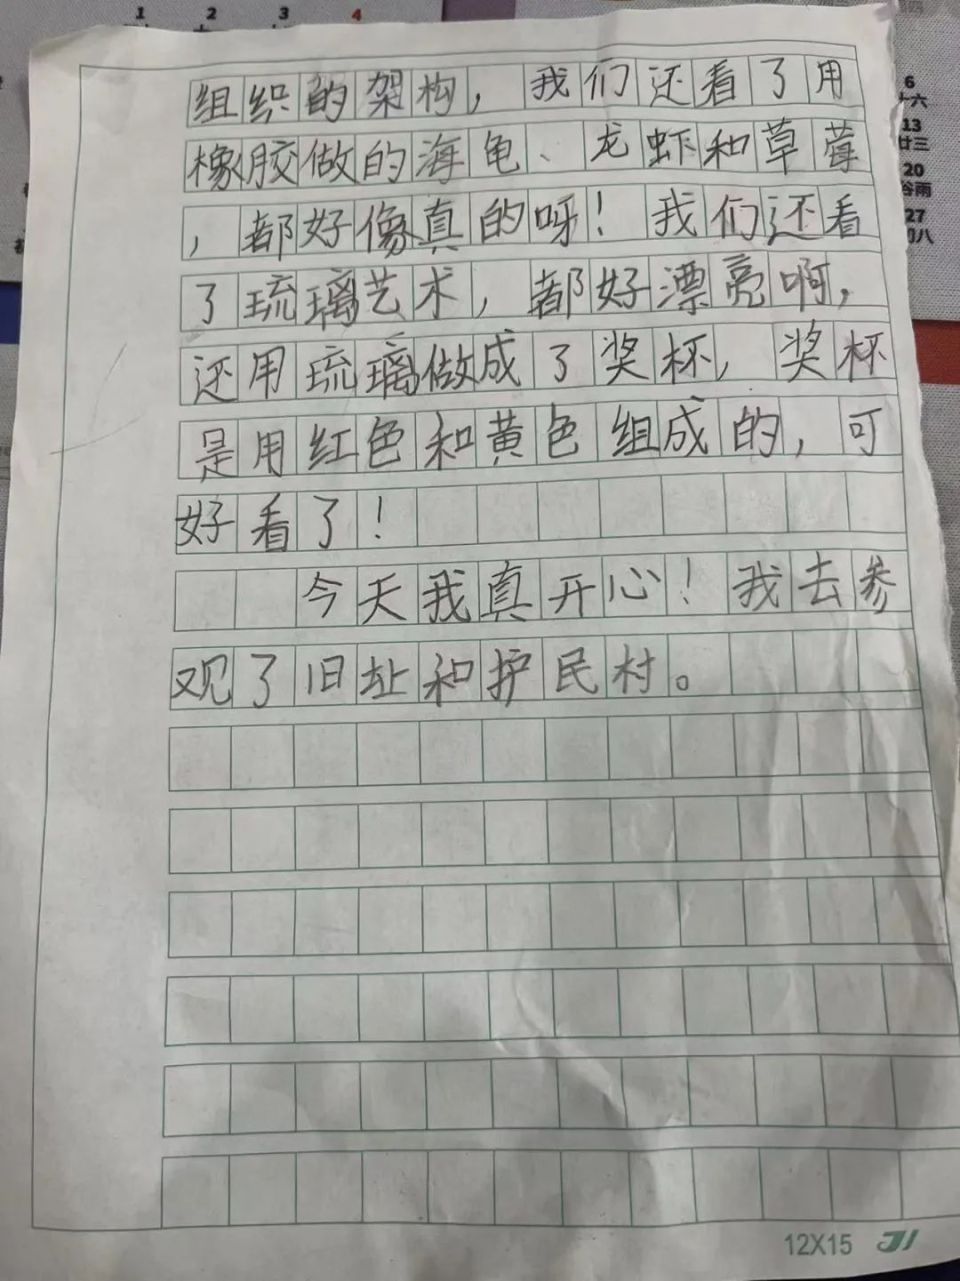 1 2 3 4
组织的架构，我们还看了用
橡胶做的海龟、龙虾和草莓
，都好像真的呀！我们还看
了琉璃艺术，都好漂亮啊，
还用琉璃做成了奖杯，奖杯
是用红色和黄色组成的，可
好看了！
今天我真开心！我去参
观了旧址和护民村。
6
十六
13
廿三
20
谷雨
27
初八
12X15